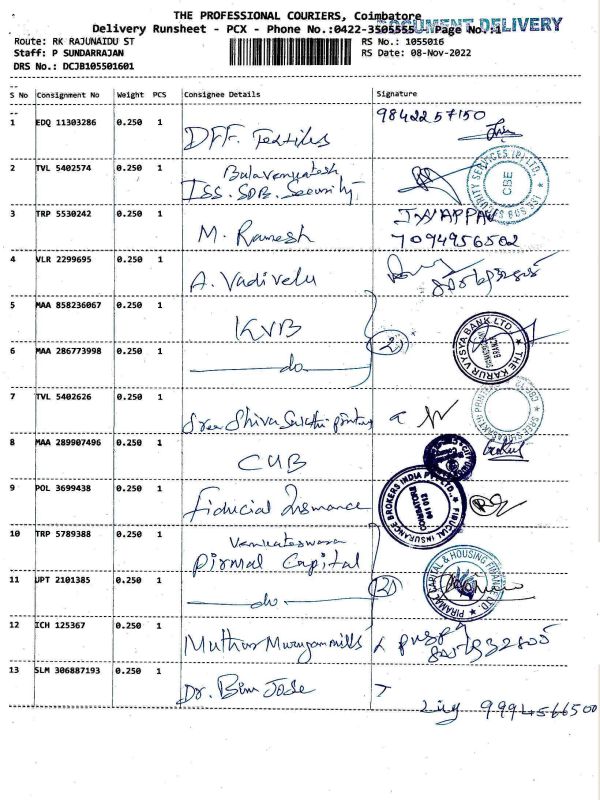 THE PROFESSIONAL COURIERS, Coimbatore
DOCUMENT DELIVERY
Delivery Runsheet - PCX - Phone No.:0422-3505555 Page No.:1
Route: RK RAJUNAIDU ST
RS No.: 1055016
Staff: P SUNDARRAJAN
RS Date: 08-Nov-2022
DRS No.: DCJB105501601
S No Consignment No Weight PCS Consignee Details Signature
1 EDQ 11303286 0.250 1 DFF. Textiles 9842257150
2 TVL 5402574 0.250 1 Balavenkatesh
ISS. SDB. Security
ISE SDB SECURITY SERVICES (P) LTD. CBE
3 TRP 5530242 0.250 1 M. Ramesh
7094956502
4 VLR 2299695 0.250 1 A. Vadivelu
5 MAA 858236067 0.250 1 KVB
THE KARUR VYSYA BANK LTD.
BRANCH
6 MAA 286773998 0.250 1 do (2)
7 TVL 5402626 0.250 1 Sree Shiva Sakthi printing
8 MAA 289907496 0.250 1 CUB
9 POL 3699438 0.250 1 Fiducial Insurance
FIDUCIAL INSURANCE BROKERS INDIA PVT. LTD.
COIMBATORE
641 012
10 TRP 5789388 0.250 1 Venkateswaran
Pirmal Capital
PIRAMAL CAPITAL & HOUSING FINANCE LTD.
11 JPT 2101385 0.250 1 do (2)
12 ICH 125367 0.250 1 Muthur Murugan mills
13 SLM 306887193 0.250 1 Dr. Bim Jose
9994566500